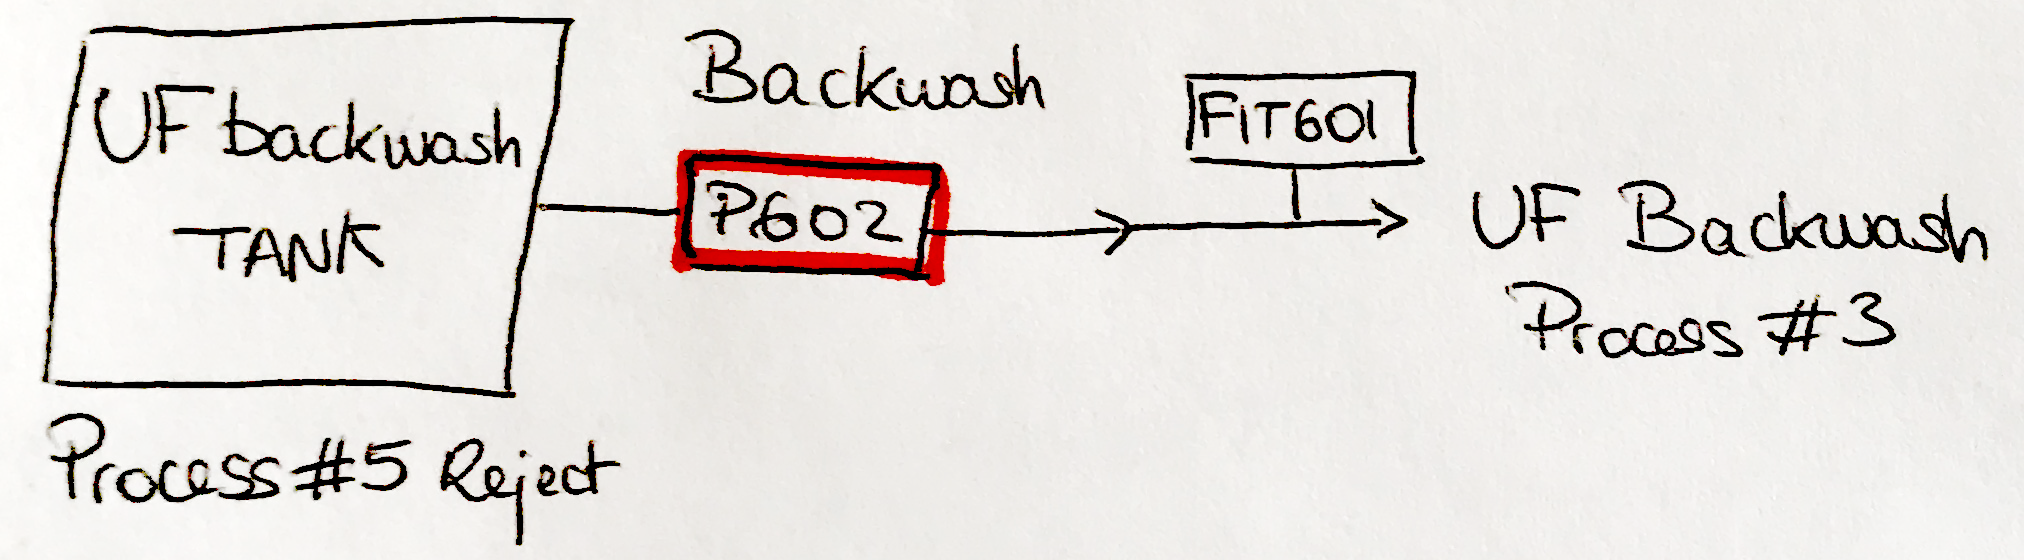 UF backwash
TANK
Process #5 Reject
Backwash
P602
FIT601
UF Backwash
Process #3